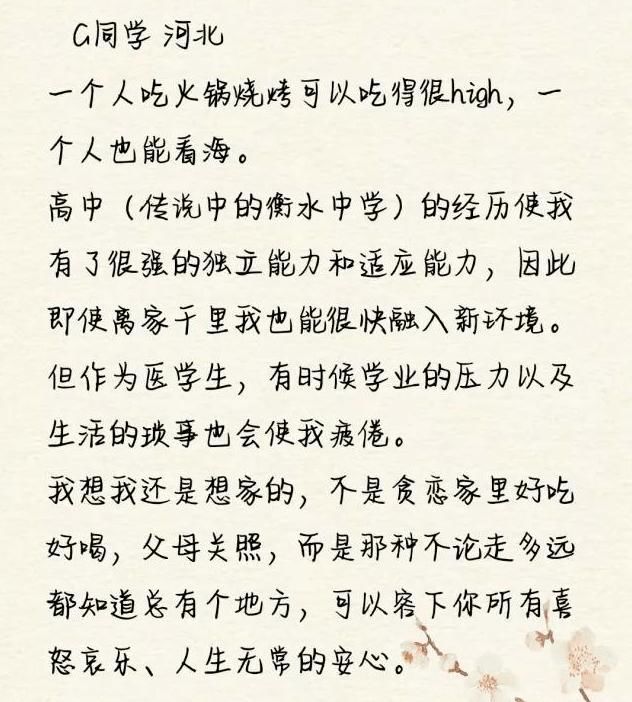 G同学 河北
一个人吃火锅烧烤可以吃得很high，一
个人也能看海。
高中（传说中的衡水中学）的经历使我
有了很强的独立能力和适应能力，因此
即使离家千里我也能很快融入新环境。
但作为医学生，有时候学业的压力以及
生活的琐事也会使我疲倦。
我想我还是想家的，不是贪恋家里好吃
好喝，父母关照，而是那种不论走多远
都知道总有个地方，可以容下你所有喜
怒哀乐、人生无常的安心。